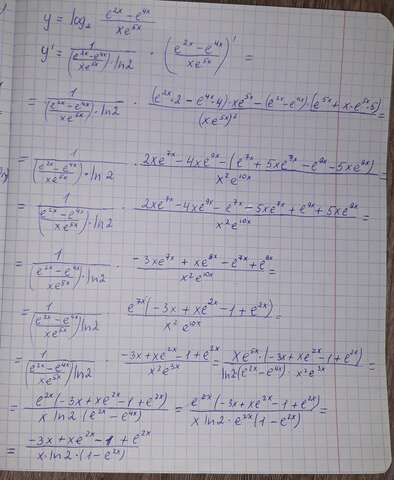 y = log₂ (e^{2x} - e^{4x})/(xe^{5x})
y' = 1/(((e^{2x} - e^{4x})/(xe^{5x})) · ln2) · ((e^{2x} - e^{4x})/(xe^{5x}))' =
= 1/(((e^{2x} - e^{4x})/(xe^{5x})) · ln2) · ((e^{2x}·2 - e^{4x}·4)·xe^{5x} - (e^{2x} - e^{4x})(e^{5x} + x·e^{5x}·5))/((xe^{5x})²) =
= 1/(((e^{2x} - e^{4x})/(xe^{5x})) · ln2) · (2xe^{7x} - 4xe^{9x} - (e^{7x} + 5xe^{7x} - e^{9x} - 5xe^{9x}))/(x²e^{10x}) =
= 1/(((e^{2x} - e^{4x})/(xe^{5x})) · ln2) · (2xe^{7x} - 4xe^{9x} - e^{7x} - 5xe^{7x} + e^{9x} + 5xe^{9x})/(x²e^{10x}) =
= 1/(((e^{2x} - e^{4x})/(xe^{5x})) · ln2) · (-3xe^{7x} + xe^{9x} - e^{7x} + e^{9x})/(x²e^{10x}) =
= 1/(((e^{2x} - e^{4x})/(xe^{5x})) · ln2) · (e^{7x}(-3x + xe^{2x} - 1 + e^{2x}))/(x² e^{10x}) =
= 1/(((e^{2x} - e^{4x})/(xe^{5x})) ln2) · (-3x + xe^{2x} - 1 + e^{2x})/(x²e^{3x}) = (xe^{5x}·(-3x + xe^{2x} - 1 + e^{2x}))/(ln2(e^{2x} - e^{4x})·x²e^{3x}) =
= (e^{2x}(-3x + xe^{2x} - 1 + e^{2x}))/(x ln2·(e^{2x} - e^{4x})) = (e^{2x}(-3x + xe^{2x} - 1 + e^{2x}))/(x ln2·e^{2x}(1 - e^{2x})) =
= (-3x + xe^{2x} - 1 + e^{2x})/(x·ln2·(1 - e^{2x}))